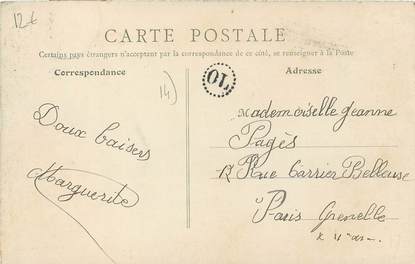 12€
CARTE POSTALE
Certains pays étrangers n'acceptant pas la correspondance de ce côté, se renseigner à la Poste
Correspondance
Adresse
14)
10
Doux baisers
Marguerite
Mademoiselle Jeanne
Pagès
Rue Carrier Belleuse
à Paris Grenelle